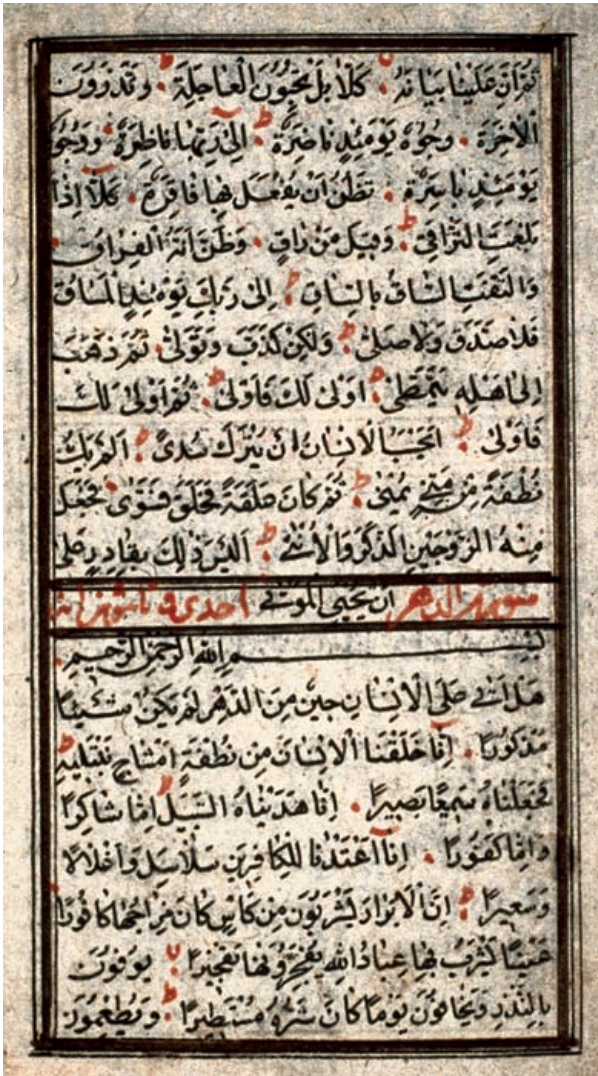 ثُمَّ اِنَّ عَلَيْنَا بَيَانَهُ كَلَّا بَلْ تُحِبُّونَ الْعَاجِلَةَ وَتَذَرُونَ
الْاٰخِرَةَ وُجُوهٌ يَوْمَئِذٍ نَاضِرَةٌ اِلٰى رَبِّهَا نَاظِرَةٌ وَوُجُوهٌ
يَوْمَئِذٍ بَاسِرَةٌ تَظُنُّ اَنْ يُفْعَلَ بِهَا فَاقِرَةٌ كَلَّا اِذَا
بَلَغَتِ التَّرَاقِيَ وَقِيلَ مَنْ رَاقٍ وَظَنَّ اَنَّهُ الْفِرَاقُ
وَالْتَفَّتِ السَّاقُ بِالسَّاقِ اِلٰى رَبِّكَ يَوْمَئِذٍ الْمَسَاقُ
فَلَا صَدَّقَ وَلَا صَلّٰى وَلٰكِنْ كَذَّبَ وَتَوَلّٰى ثُمَّ ذَهَبَ
اِلٰى اَهْلِهِ يَتَمَطّٰى اَوْلٰى لَكَ فَاَوْلٰى ثُمَّ اَوْلٰى لَكَ
فَاَوْلٰى اَيَحْسَبُ الْاِنْسَانُ اَنْ يُتْرَكَ سُدًى اَلَمْ يَكُ
نُطْفَةً مِنْ مَنِيٍّ يُمْنٰى ثُمَّ كَانَ عَلَقَةً فَخَلَقَ فَسَوّٰى فَجَعَلَ
مِنْهُ الزَّوْجَيْنِ الذَّكَرَ وَالْاُنْثٰى اَلَيْسَ ذٰلِكَ بِقَادِرٍ عَلٰى
سورة الدهر اَنْ يُحْيِيَ الْمَوْتٰى احدى وثلثون اية
بِسْمِ اللهِ الرَّحْمٰنِ الرَّحِيمِ
هَلْ اَتٰى عَلَى الْاِنْسَانِ حِينٌ مِنَ الدَّهْرِ لَمْ يَكُنْ شَيْئًا
مَذْكُورًا اِنَّا خَلَقْنَا الْاِنْسَانَ مِنْ نُطْفَةٍ اَمْشَاجٍ نَبْتَلِيهِ
فَجَعَلْنَاهُ سَمِيعًا بَصِيرًا اِنَّا هَدَيْنَاهُ السَّبِيلَ اِمَّا شَاكِرًا
وَاِمَّا كَفُورًا اِنَّا اَعْتَدْنَا لِلْكَافِرِينَ سَلَاسِلَ وَاَغْلَالًا
وَسَعِيرًا اِنَّ الْاَبْرَارَ يَشْرَبُونَ مِنْ كَاْسٍ كَانَ مِزَاجُهَا كَافُورًا
عَيْنًا يَشْرَبُ بِهَا عِبَادُ اللهِ يُفَجِّرُونَهَا تَفْجِيرًا يُوفُونَ
بِالنَّذْرِ وَيَخَافُونَ يَوْمًا كَانَ شَرُّهُ مُسْتَطِيرًا وَيُطْعِمُونَ